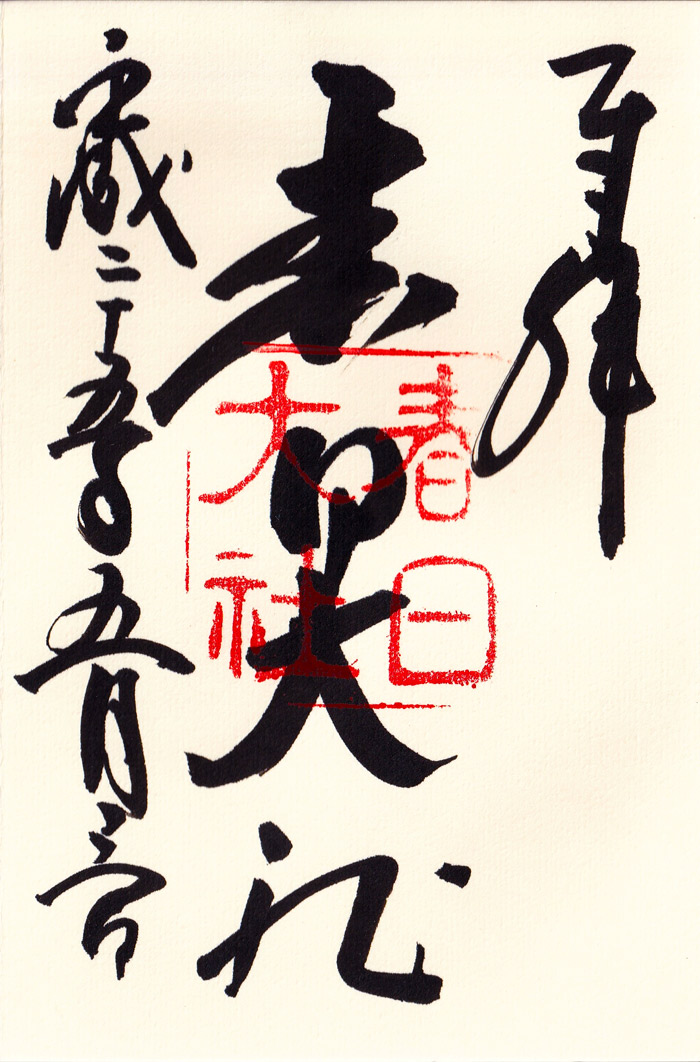 奉拝
春日大社
春日
大社
平成二十五年五月三日